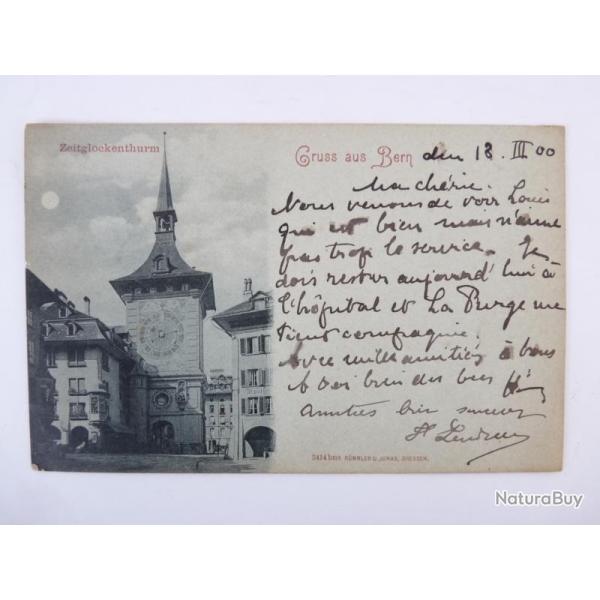 Zeitglockenthurm
Gruss aus Bern den 18. III 00
Ma chérie.
Nous venons de voir Louis
qui est bien mais n'aime
pas trop le service. Je
dois rester aujourd'hui à
l'hôpital et La Purge me
tient compagnie.
avec mille amitiés à vous
bien des
Amitiés bien
KÜMMLER U. JONAS, DRESDEN.
NaturaBuy